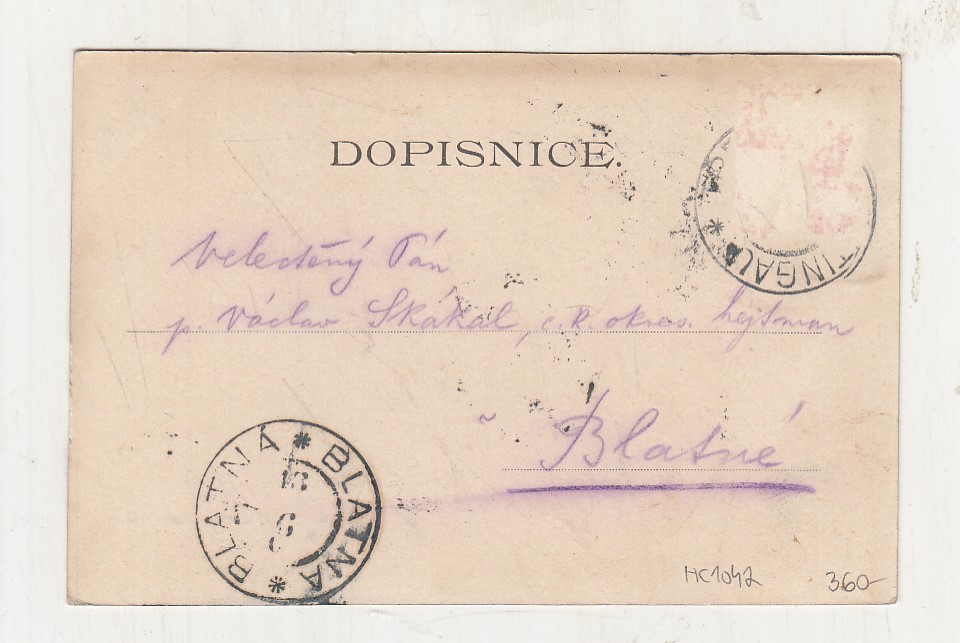 DOPISNICE.
TINGAU *
Velectěný Pán
p. Václav Skákal, c. k. okres. hejtman
v Blatné
BLATNÁ * BLATNA *
HC1042
360-